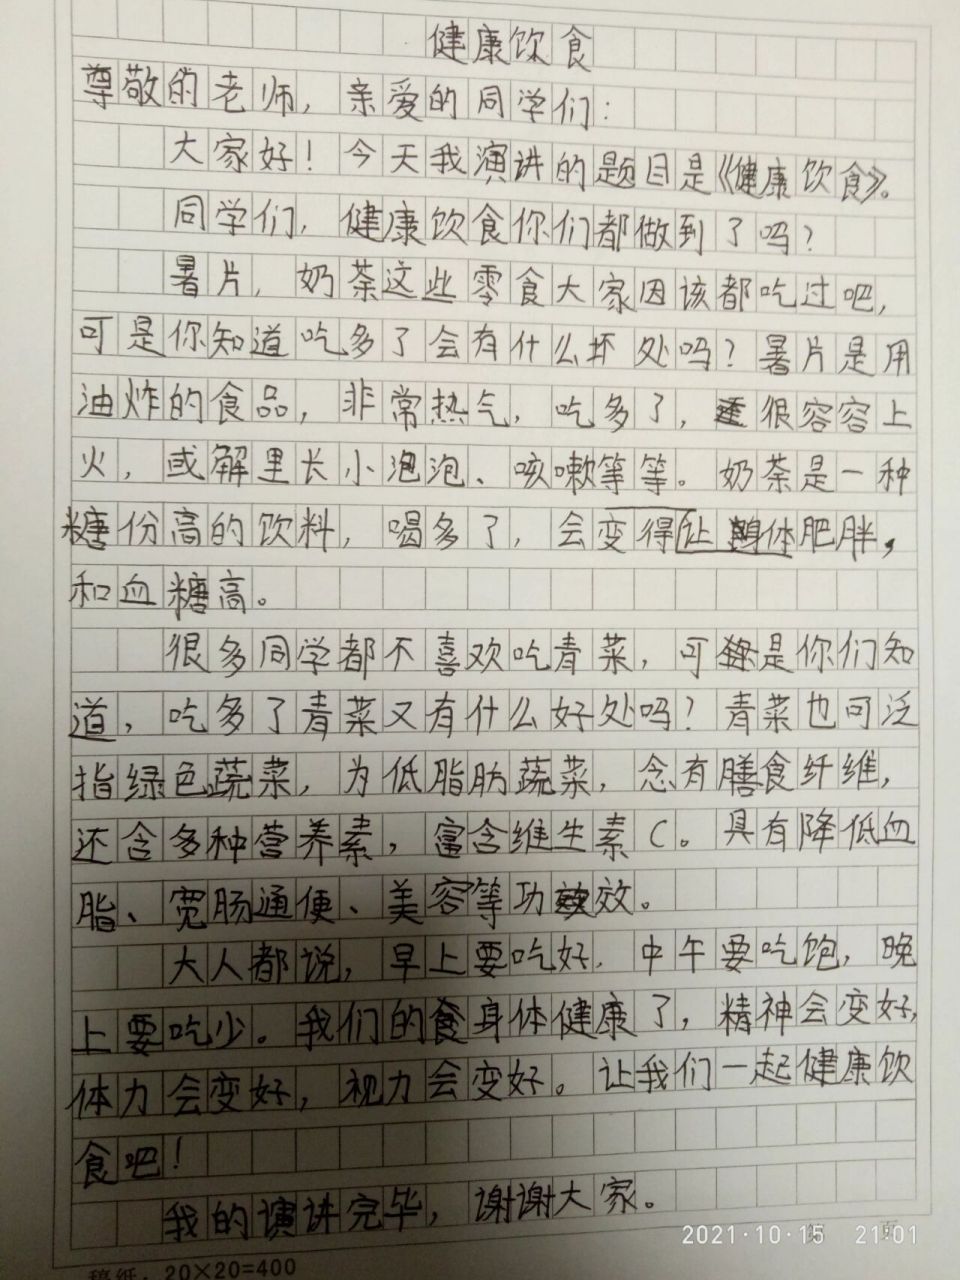 健康饮食
尊敬的老师，亲爱的同学们：
大家好！今天我演讲的题目是《健康饮食》。
同学们，健康饮食你们都做到了吗？
暑片，奶茶这些零食大家因该都吃过吧，
可是你知道吃多了会有什么坏处吗？暑片是用
油炸的食品，非常热气，吃多了，很容容上
火，或解里长小泡泡、咳嗽等等。奶茶是一种
糖份高的饮料，喝多了，会变得让身体肥胖，
和血糖高。
很多同学都不喜欢吃青菜，可是你们知
道，吃多了青菜又有什么好处吗？青菜也可泛
指绿色蔬菜，为低脂肪蔬菜，念有膳食纤维，
还含多种营养素，富含维生素C。具有降低血
脂、宽肠通便、美容等功效。
大人都说，早上要吃好，中午要吃饱，晚
上要吃少。我们的身体健康了，精神会变好，
体力会变好，视力会变好。让我们一起健康饮
食吧！
我的演讲完毕，谢谢大家。
第 页
2021·10·15 21:01
稿纸：20×20=400